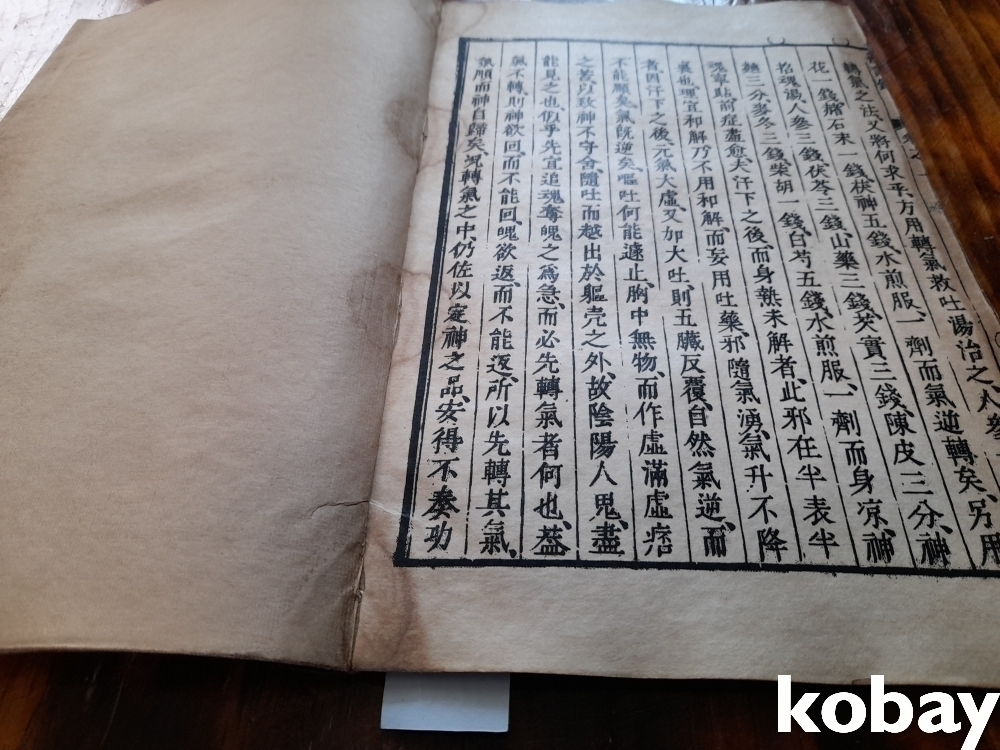 轉氣之法、又將何求乎、方用轉氣救吐湯治之、人參
花一錢、赭石末一錢、茯神五錢、水煎服、一劑而氣逆轉矣、另用
招魂湯、人參三錢、茯苓三錢、山藥三錢、芡實三錢、陳皮三分、神
麯三分、麥冬三錢、柴胡一錢、白芍五錢、水煎服、一劑而身凉、神
魂寧貼、前症盡愈、夫汗下之後、而身熱未解者、此邪在半表半
裏也、理宜和解、乃不用和解、而妄用吐藥、邪隨氣湧、氣升不降
者、因汗下之後、元氣大虛、又加大吐、則五臟反覆、自然氣逆、而
不能順矣、氣既逆矣、嘔吐何能遽止、胸中無物、而作虛滿虛痞
之、以致神不守舍、隨吐而越出於軀壳之外、故陰陽人鬼、盡
能見之也、似乎先宜追魂奪魄之為急、而必先轉氣者何也、蓋
氣不轉則神欲回、而不能回、魄欲返、而不能返、所以先轉其氣、
氣順而神自歸矣、况轉氣之中、仍佐以定神之品、安得不奏功
kobay